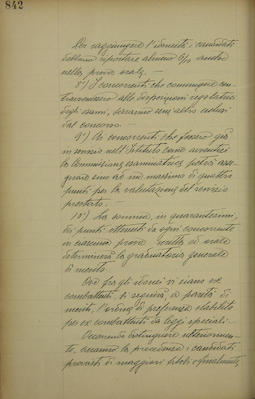 842
Per raggiungere l'idoneità i candidati
debbono riportare almeno 6/10 anche
nella prova orale.-
8°) I concorrenti che comunque con-
travvenissero alle disposizioni regolatrici
degli esami, saranno senz'altro esclusi
dal concorso.-
9°) Ai concorrenti che fossero già
in servizio nell'Istituto come avventizi
la Commissione esaminatrice potrà asse-
gnare sino ad un massimo di quattro
punti per la valutazione del servizio
prestato.-
10°) La somma, in quarantesimi,
dei punti ottenuti da ogni concorrente
in ciascuna prova scritta ed orale
determinerà la graduatoria generale
di merito.
Ove fra gli idonei vi siano ex
combattenti, si seguirà, a parità di
merito, l'ordine di preferenza stabilito
per ex combattenti da leggi speciali.-
Occorrendo distinguere ulteriormen-
te, avranno la precedenza i candidati
provvisti di maggiori titoli